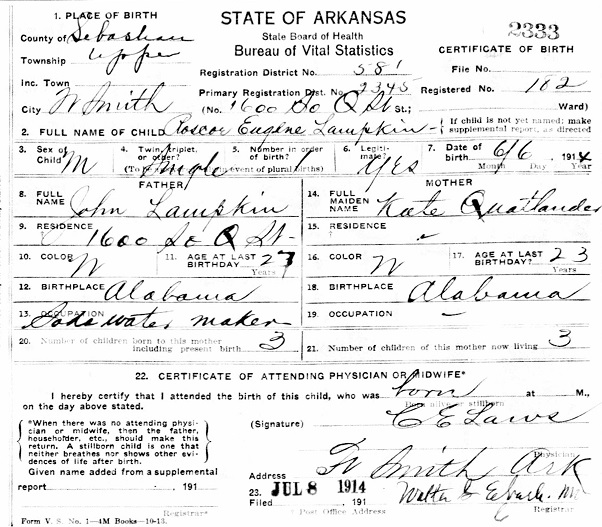 STATE OF ARKANSAS
State Board of Health
Bureau of Vital Statistics
2333
CERTIFICATE OF BIRTH
1. PLACE OF BIRTH
County of Sebastian
Township Upper
Inc. Town
City Ft Smith
Registration District No. 581
Primary Registration Dist. No. 2345
(No. 1600 So Q St St.; Ward)
File No.
Registered No. 102
2. FULL NAME OF CHILD Roscoe Eugene Lampkin
{ If child is not yet named; make supplemental report, as directed
3. Sex of Child M
4. Twin, triplet, or other? Single
5. Number in order of birth? 1
(To event of plural births)
6. Legiti-mate? Yes
7. Date of birth 6/6 1914
Month Day Year
FATHER
8. FULL NAME John Lampkin
9. RESIDENCE 1600 So Q St
10. COLOR W
11. AGE AT LAST BIRTHDAY 27
Years
12. BIRTHPLACE Alabama
13. OCCUPATION Soda water maker
MOTHER
14. FULL MAIDEN NAME Kate
15. RESIDENCE
16. COLOR W
17. AGE AT LAST BIRTHDAY? 23
Years
18. BIRTHPLACE Alabama
19. OCCUPATION —
20. Number of children born to this mother including present birth 3
21. Number of children of this mother now living 3
22. CERTIFICATE OF ATTENDING PHYSICIAN OR MIDWIFE*
I hereby certify that I attended the birth of this child, who was born at M.,
on the day above stated.
Born alive or stillborn
*When there was no attending physi-
cian or midwife, then the father,
householder, etc., should make this
return. A stillborn child is one that
neither breathes nor shows other evi-
dences of life after birth.
(Signature) C E Laws
Physician
Given name added from a supplemental
report , 191
Registrar
Address Ft Smith Ark
23. JUL 8 1914
Filed , 191
Post Office Address
Registrar
Form V. S. No. 1—4M Books—10-13.